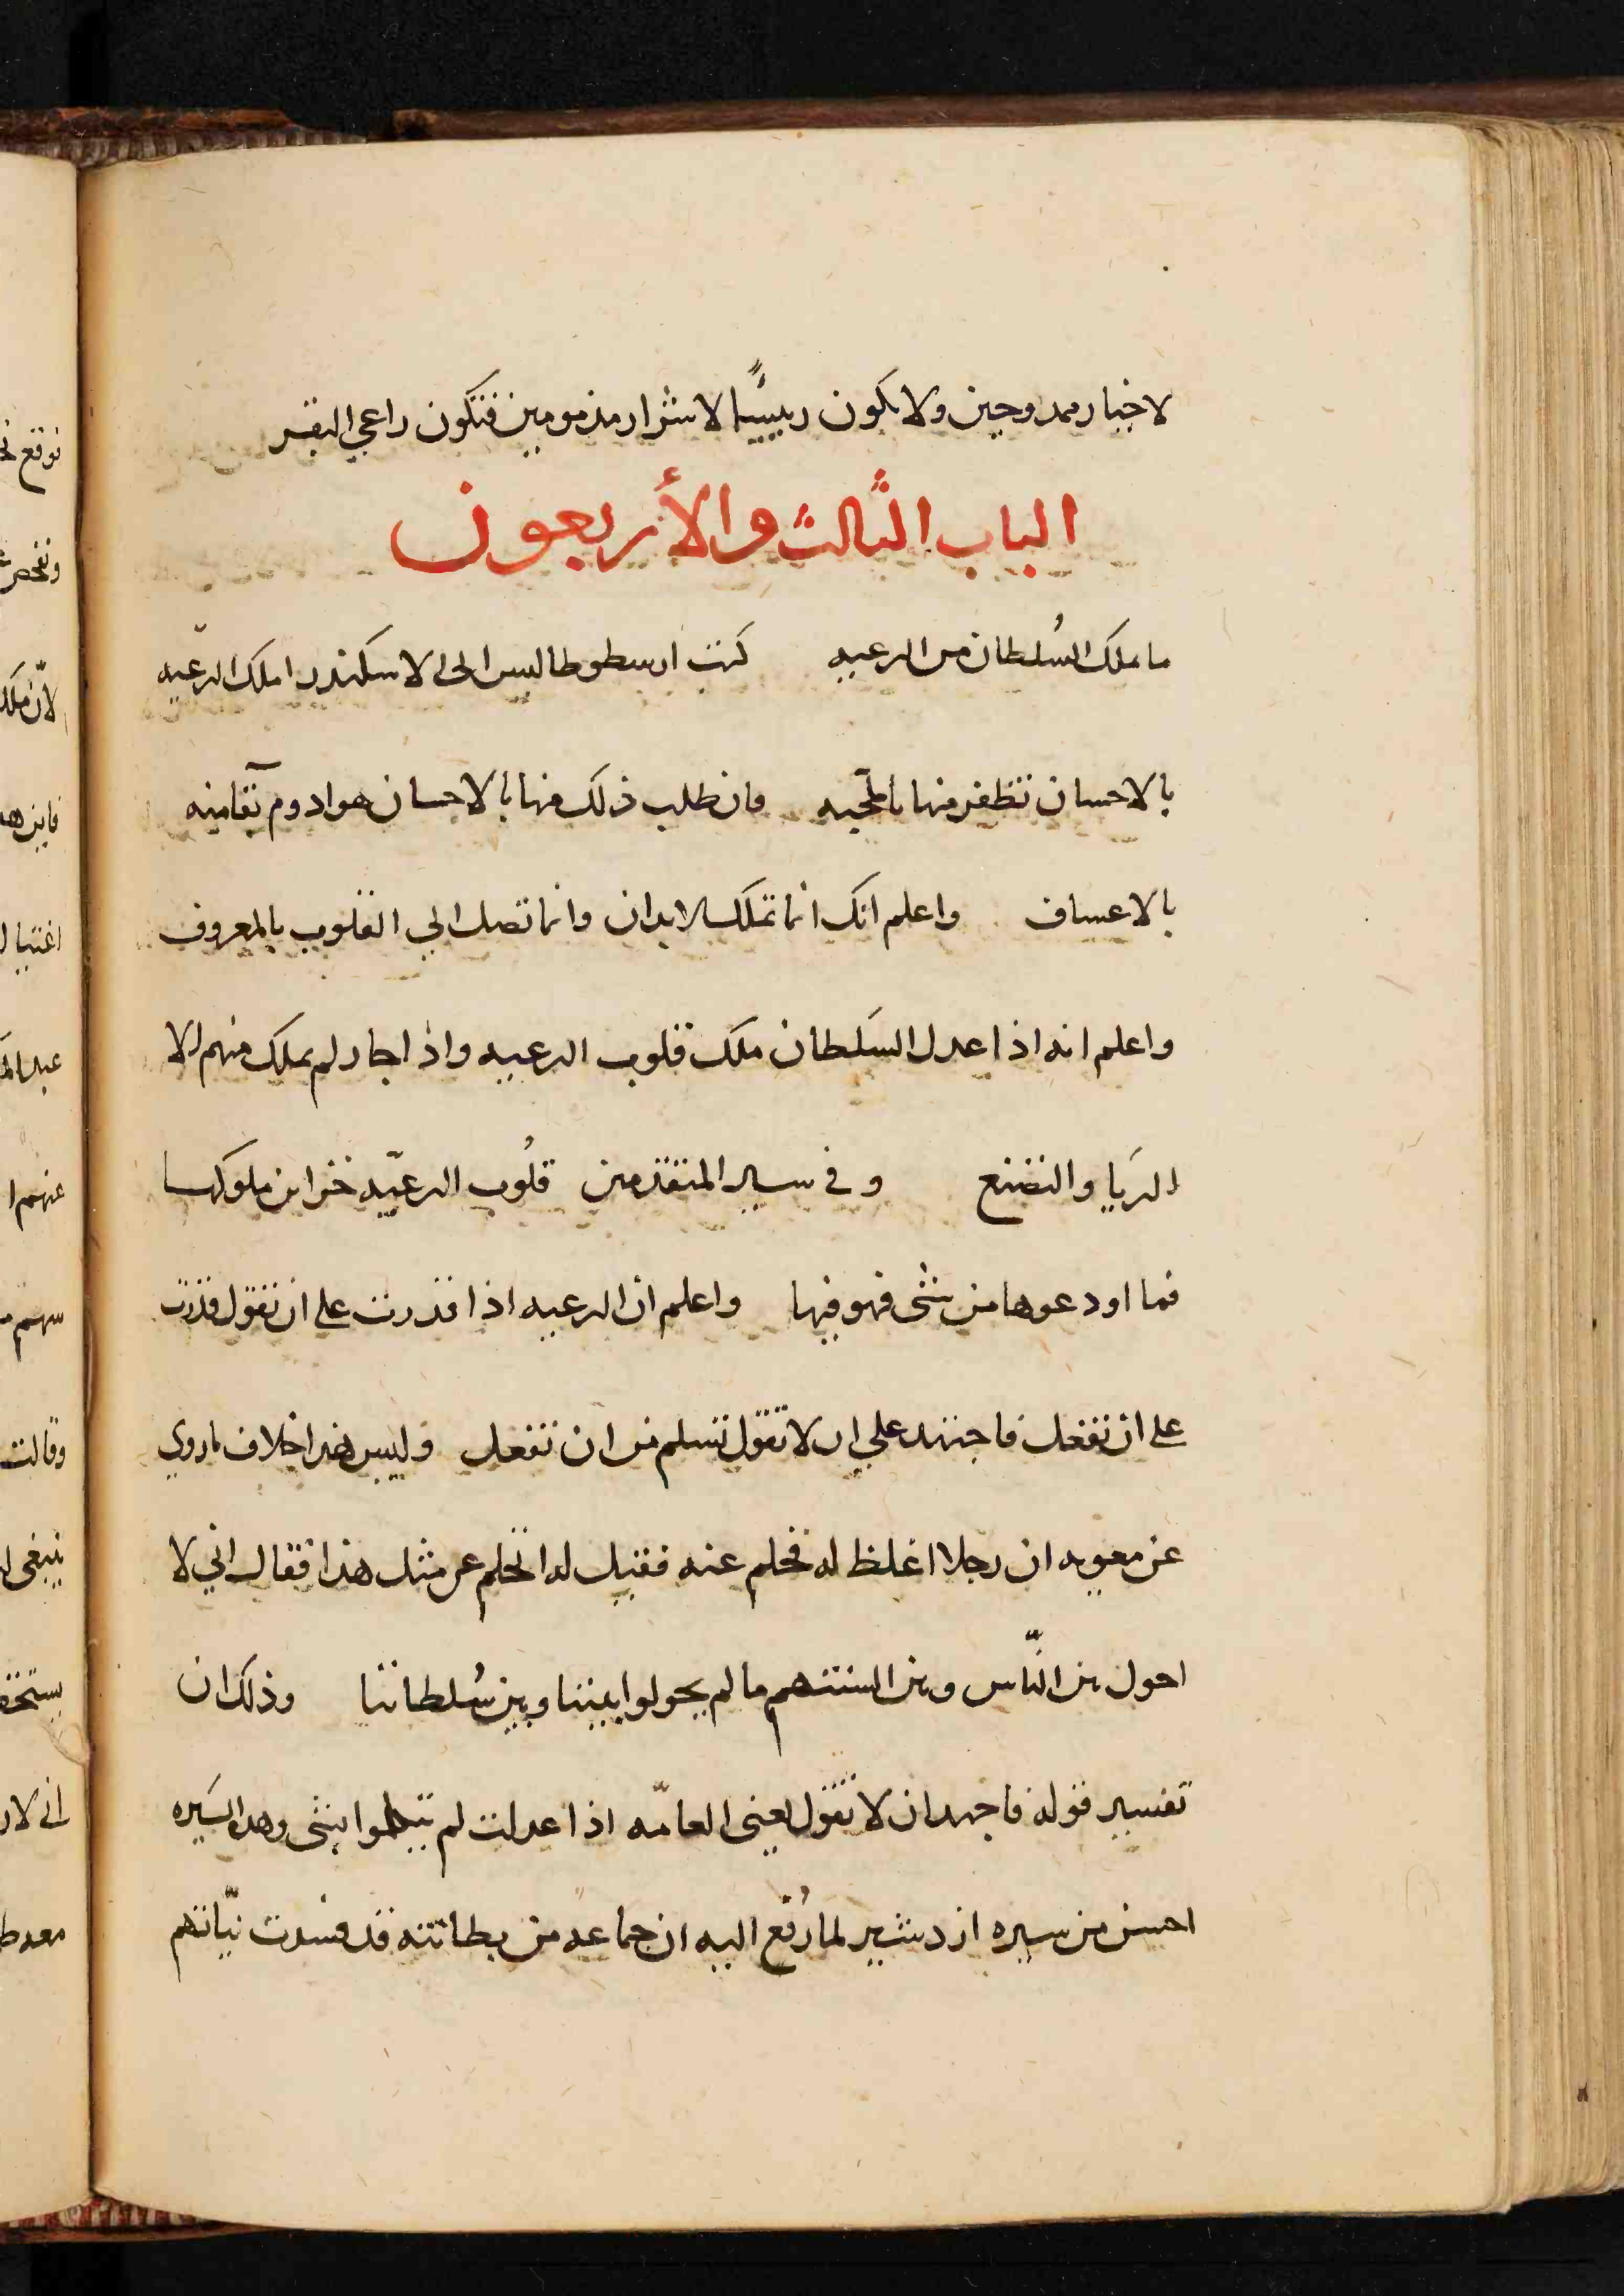 لاخيار ممدوحين ولا تكون رييسًا لاشرار مذمومين فتكون راعي البقر
الباب الثالث والأربعون
ما ملك السُلطان من الرعيه كتب ارسطوطاليس الى الاسكندر املك الرعيّه
بالاحسان تظفر منها بالمحبه فان طلب ذلك منها بالاحسان هو ادوم بقآ منه
بالاعساف واعلم انك انما تملك الابدان وانما تصل الي القلوب بالمعروف
واعلم انه اذا عدل السَلطان ملك قلوب الرعيه واذا جار لم يملك منهم الا
الرَيا والتصنع وفي سير المتقدمين قلُوب الرعيّه خزاين ملوكها
فما اودعوها من شى فهو فيها واعلم ان الرعيه اذا قدرت على ان تقول قدرت
على ان تفعل فاجتهد علي ان لا تقول تسلم من ان تفعل وليس هذا خلاف ما روي
عن معويه ان رجلا اغلظ له فحلم عنه فقيل له اتحلم عن مثل هذا فقال اني لا
احول بين النّاس وبين السنتهم ما لم يحولوا بيننا وبين سُلطاننا وذلك ان
تفسير قوله فاجهد ان لا تقول يعنى العامّه اذا عدلت لم يتكلموا بشى وهذه السَيره
احسن من سيره ازدشير لما رُفع اليه ان جماعه من بطانته قد فسدت نيّاتهم